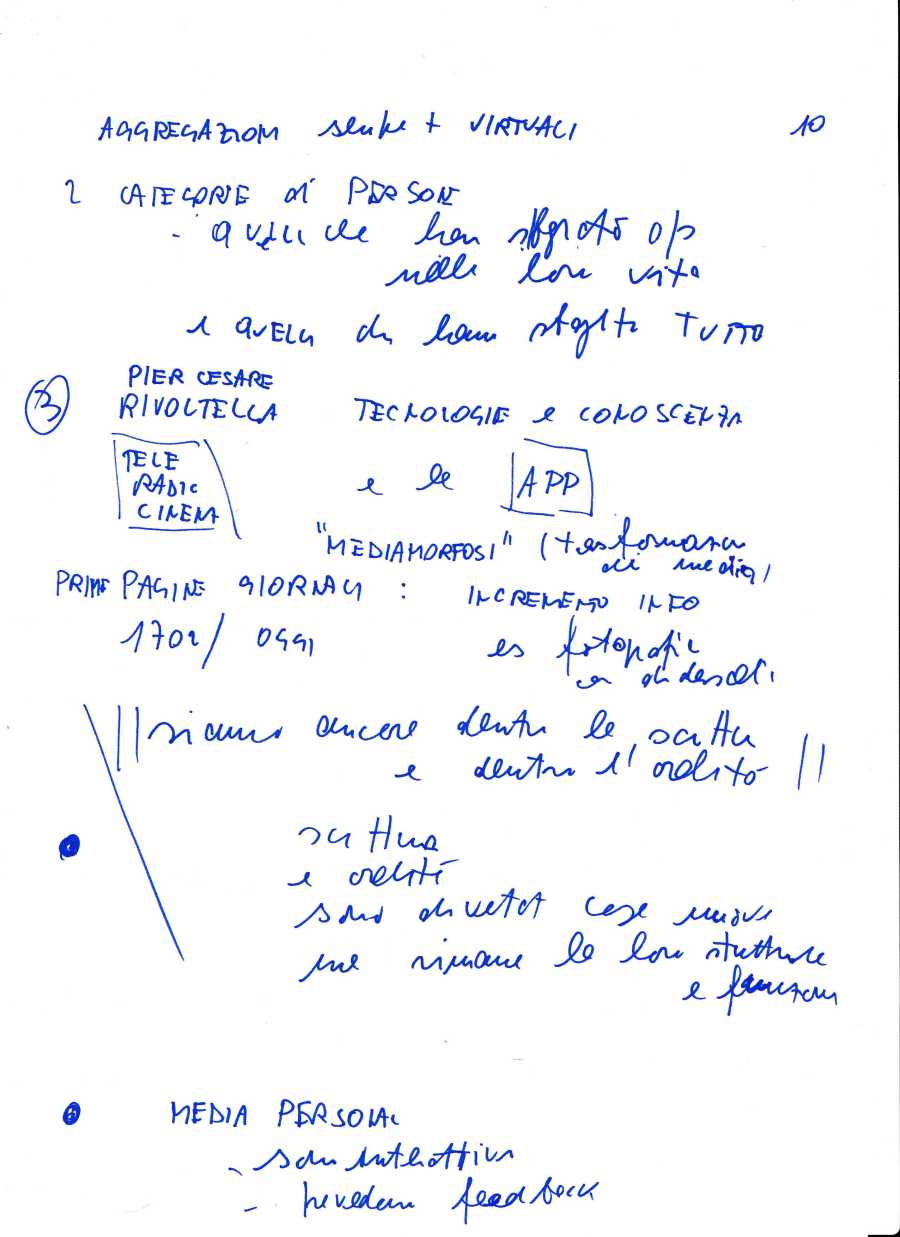 AGGREGAZIONI sempre + VIRTUALI 10
2 CATEGORIE di PERSONE
- QUELLI che han sfogliato
nella loro vita
e QUELLI che hanno TUTTO
PIER CESARE
RIVOLTELLA TECNOLOGIE e CONOSCENZA
TELE
RADIO
CINEMA
e le APP
"MEDIAMORFOSI" (trasformazione
di media)
PRIME PAGINE GIORNALI : INCREMENTO INFO
1702/ OGGI es fotografie
con didascalie
|| siamo ancora dentro la scrittura
e dentro l' oralità ||
scrittura
e oralità
sono diventate cose nuove
ma rimane la loro struttura
e funzione
MEDIA PERSONALI
- sono interattivi
- prevedono feedback